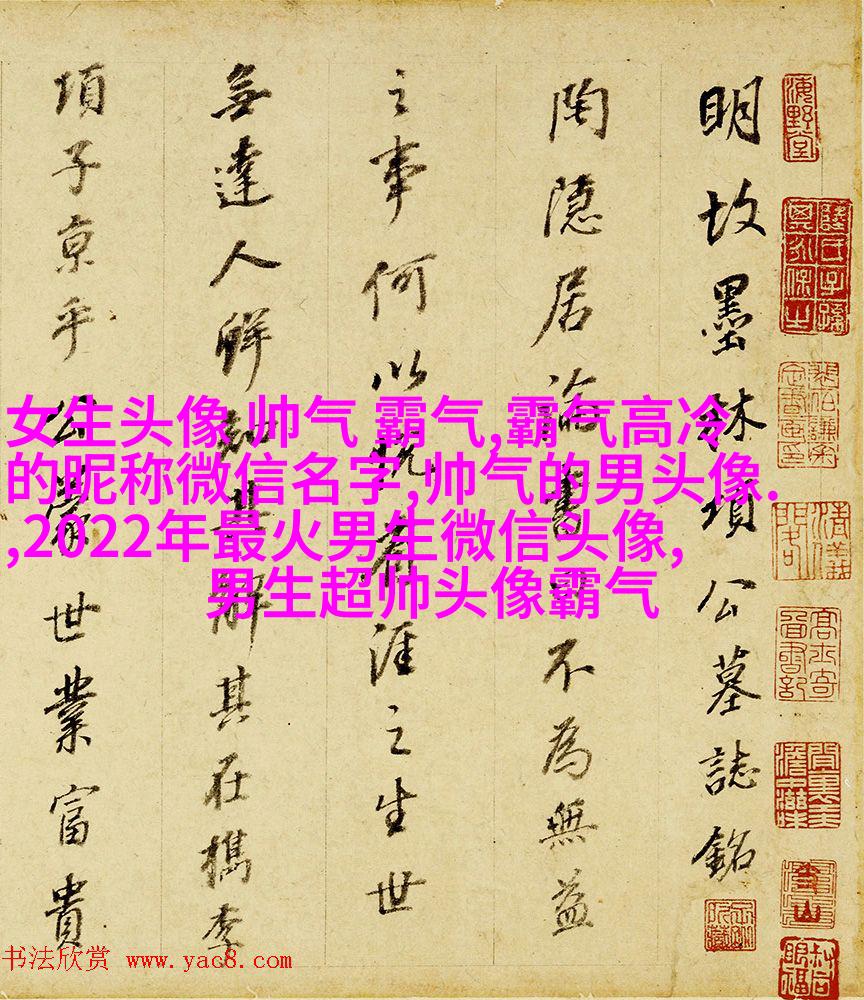 明故墨林項公墓誌銘
陶隱居論書不為無益
之事何以悅有涯之生世
無達人鮮知其解其在檇李
項子京乎公蒙世業富貴
海野堂
女生头像 帅气 霸气,霸气高冷
的昵称微信名字,帅气的男头像.
,2022年最火男生微信头像,
男生超帅头像霸气
书法欣赏 www.yac8.com